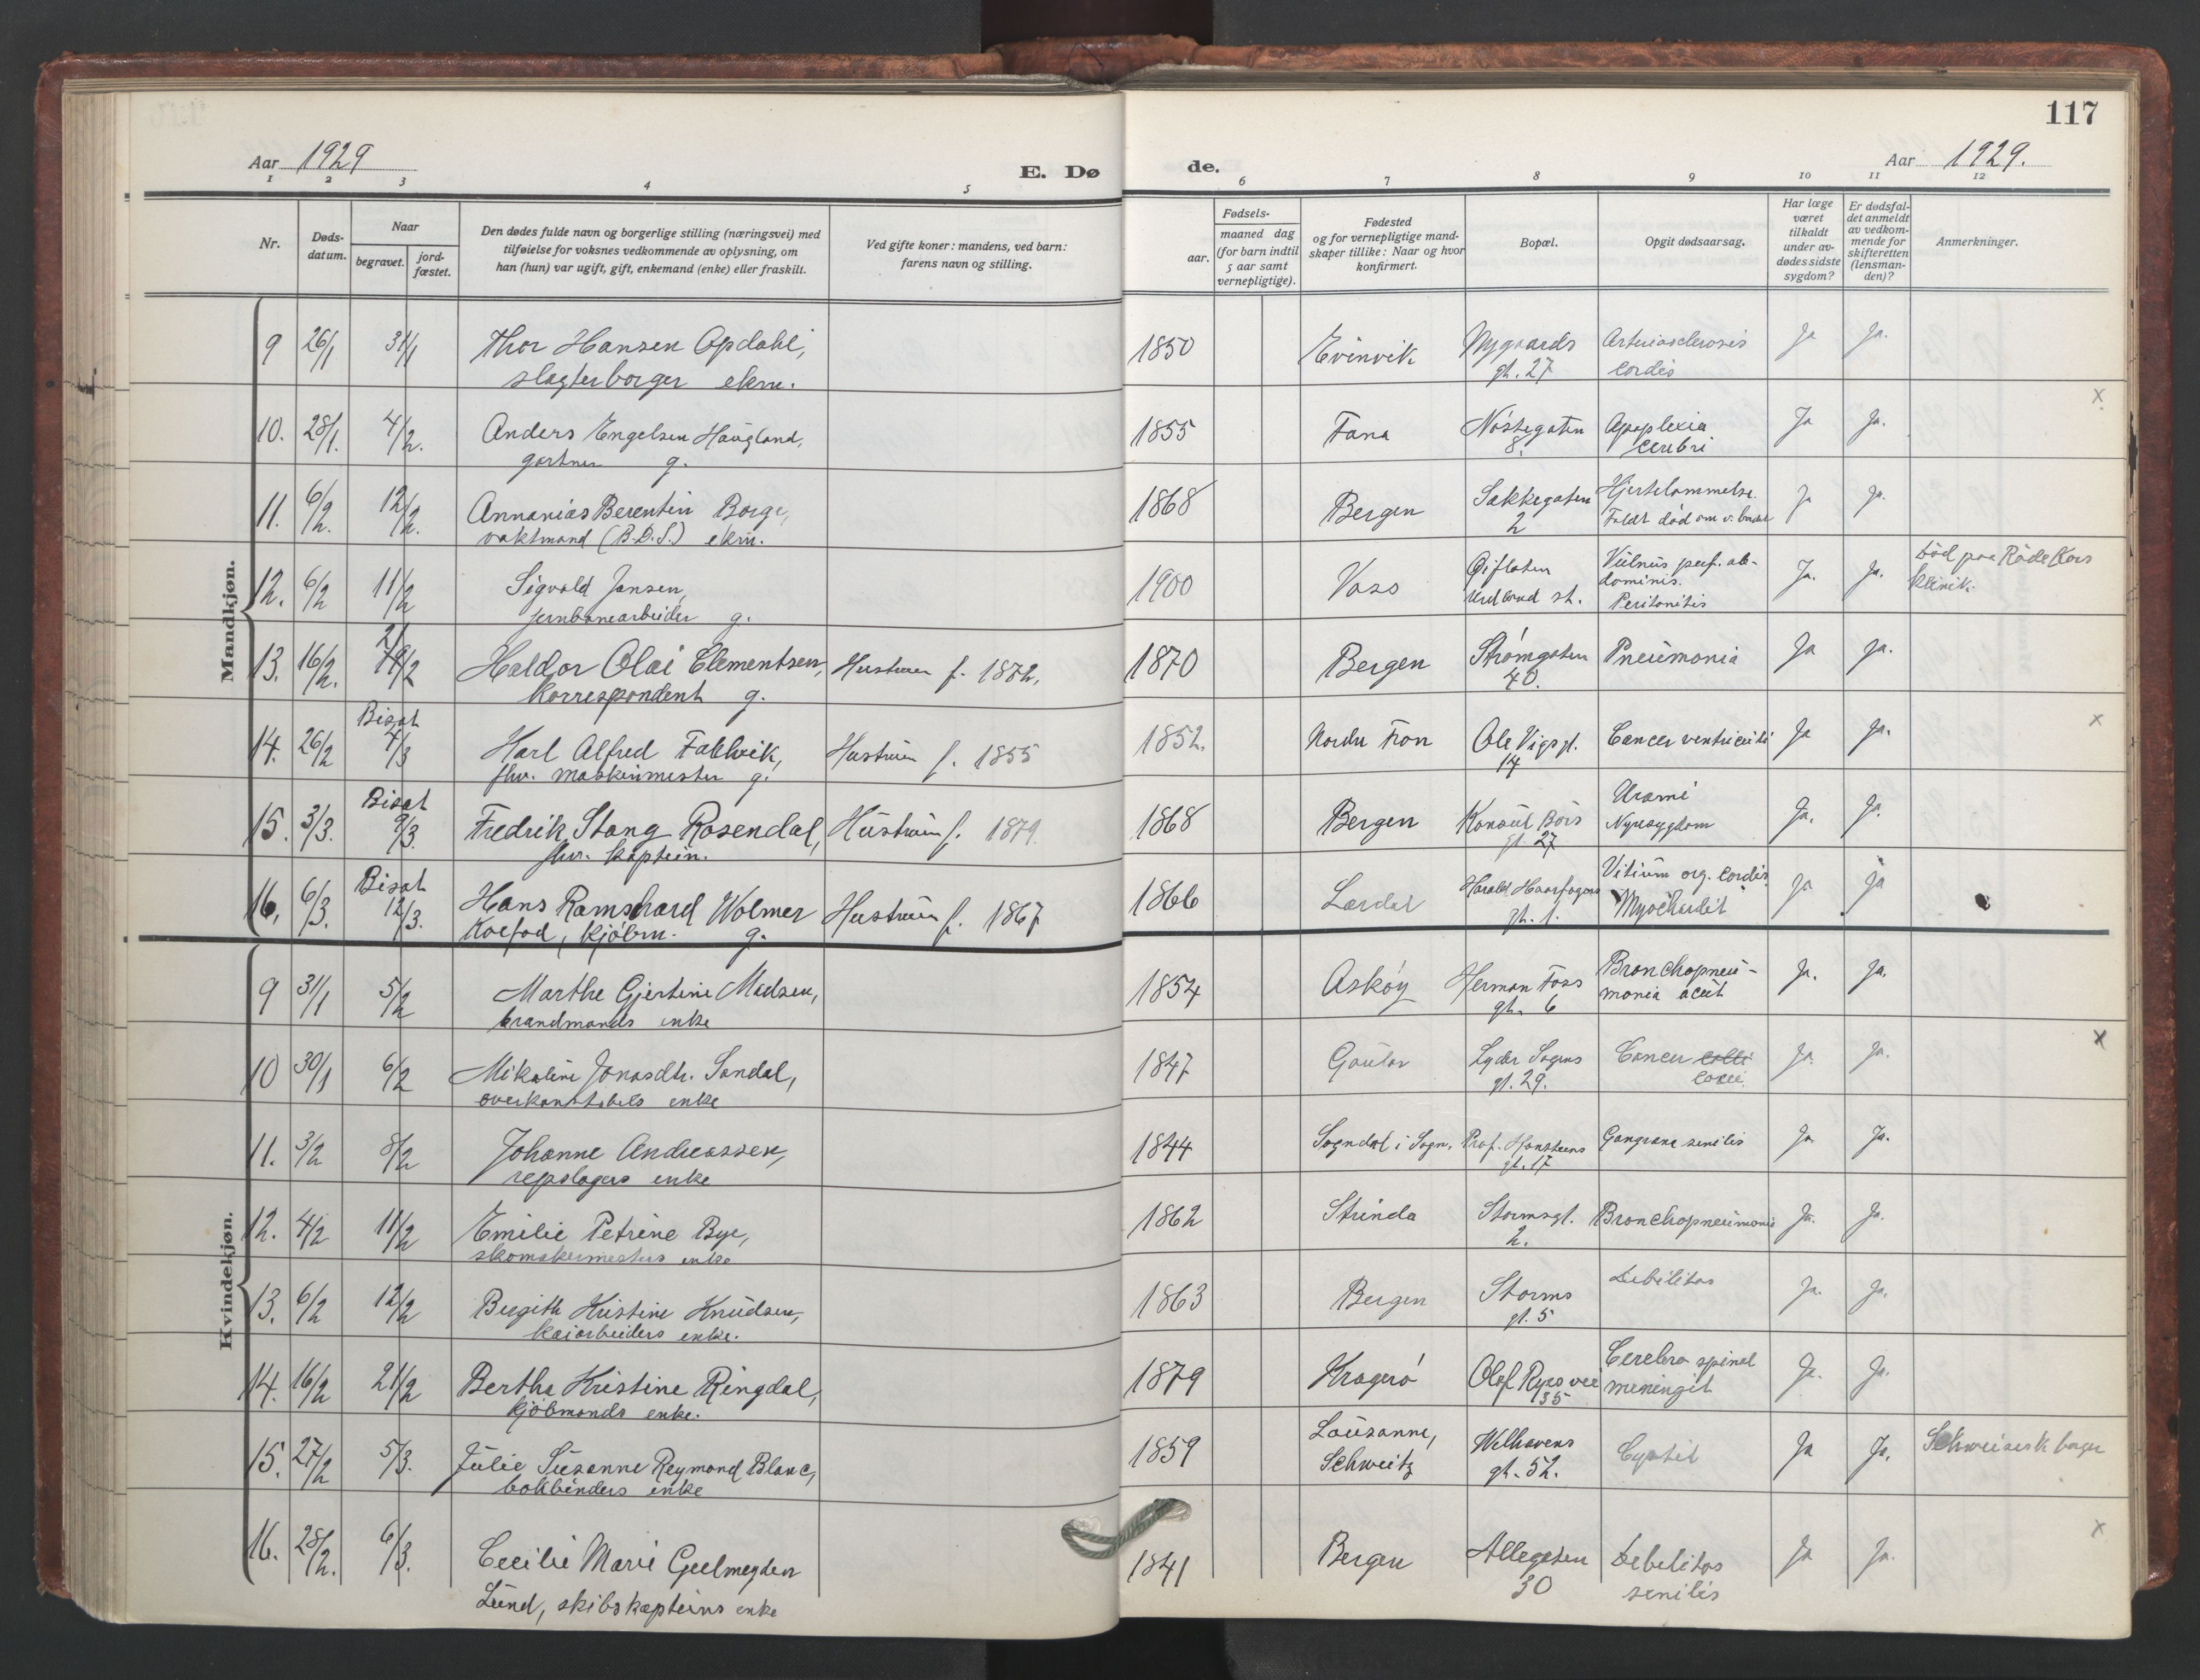 117
Aar 1929
E. Dø
de.
Aar 1929.
1 2 3 4 5 6 7 8 9 10 11 12
Nr.
Døds-
datum.
Naar
begravet.
jord-
fæstet.
Den dødes fulde navn og borgerlige stilling (næringsvei) med
tilføielse for voksnes vedkommende av oplysning, om
han (hun) var ugift, gift, enkemand (enke) eller fraskilt.
Ved gifte koner: mandens, ved barn:
farens navn og stilling.
Fødsels-
aar.
maaned dag
(for barn indtil
5 aar samt
vernepligtige).
Fødested
og for vernepligtige mand-
skaper tillike: Naar og hvor
konfirmert.
Bopæl.
Opgit dødsaarsag.
Har læge
været
tilkaldt
under av-
dødes sidste
sygdom?
Er dødsfal-
det anmeldt
av vedkom-
mende for
skifteretten
(lensman-
den)?
Anmerkninger.
Mandkjøn.
9 26/1 31/1 Thor Hansen Opdahl, 1850 Evinvik Nygaards Arteriosclerosis Ja Ja.
slagterborger ekm. gt. 27 cordis
10. 28/1. 4/2. Anders Engelsen Haugland, 1855 Fana Nöstegaten Apoplexia Ja Ja. x
gartner g. 8. cerebri
11. 6/2. 12/2. Annanias Berentin Borge, 1868 Bergen Sækkegaten Hjertelammelse. Ja Ja.
vaktmand (B.D.S.) ekm. 2 Faldt död om
12. 6/2 11/2 Sigvald Jansen, 1900 Voss Gjfloten Vulnus perf. ab- Ja. Ja. Död paa Röde Kors
jernbanearbeider g. st. dominis. klinik.
Peritonitis
13. 16/2. 21/2 Haldor Olai Clementsen, Hustruen f. 1872, 1870 Bergen Strömgaten Pneumonia Ja Ja.
korrespondent g. 40.
14. 26/2 Bisat 4/3 Karl Alfred Hustruen f. 1855 1852. Nordre Fron Ole Vigsgt. Cancer ventriculi Ja Ja. x
fhv. maskinmester g. 14
15. 3/3. Bisat 9/3. Fredrik Stang Rosendal, Hustruen f. 1879. 1868 Bergen Konsul Börs Uræmi Ja. Ja.
fhv. kaptein. gt. 27 Nyresygdom
16. 6/3. Bisat 12/3. Hans Ramshard Wolmer Hustruen f. 1867 1866 Lærdal Harald Haarfagers Vitium org. cordis Ja Ja
Koefod, kjöbm. g. gt. 1. Myocardit
Kvindekjøn.
9 31/1 5/2 Marthe Gjertine Madsen, 1854 Asköy Herman Foss Bronchopneu- Ja. Ja.
brandmands enke gt. 6 monia acut
10 30/1 6/2 Mikaline Jonasdtr. Sandal, 1847 Gaular Lyder Sagens Cancer colli Ja. Ja. x
overkonstabels enke gt. 29.
11. 3/2 8/2 Johanne Andreassen, 1844 Sogndal i Sogn. Prof. Hansteens Gangræna senilis Ja Ja.
repslagers enke gt. 17
12. 4/2 11/2 Emilie Petrine Bye, 1862 Strinda Stormsgt. Bronchopneumoni Ja. Ja.
skomakermesters enke 2.
13. 6/2 12/2 Bergith Kristine Knudsen, 1863 Bergen Storms Debilitas Ja. Ja.
kaiarbeiders enke. gt. 5
14. 16/2 21/2 Bertha Kristine Ringdal, 1879 Kragerö Olaf Ryes vei Cerebro spinal Ja. Ja.
kjöbmands enke. 35 meningit
15. 27/2 5/3. Julie Suzanne Reymond Blanc, 1859 Lausanne, Welhavens Cystit Ja Ja. Schweisisk borger
bokbinders enke Schweitz gt. 52.
16. 28/2. 6/3. Cecilie Marie Geelmeyden 1841 Bergen Allegaten Debelitas Ja Ja. x
Lund, skibskapteins enke 30 senilis